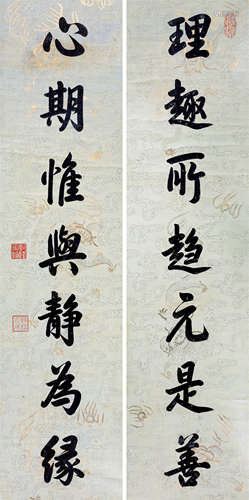 理趣所趋元是善
心期惟與静為緣